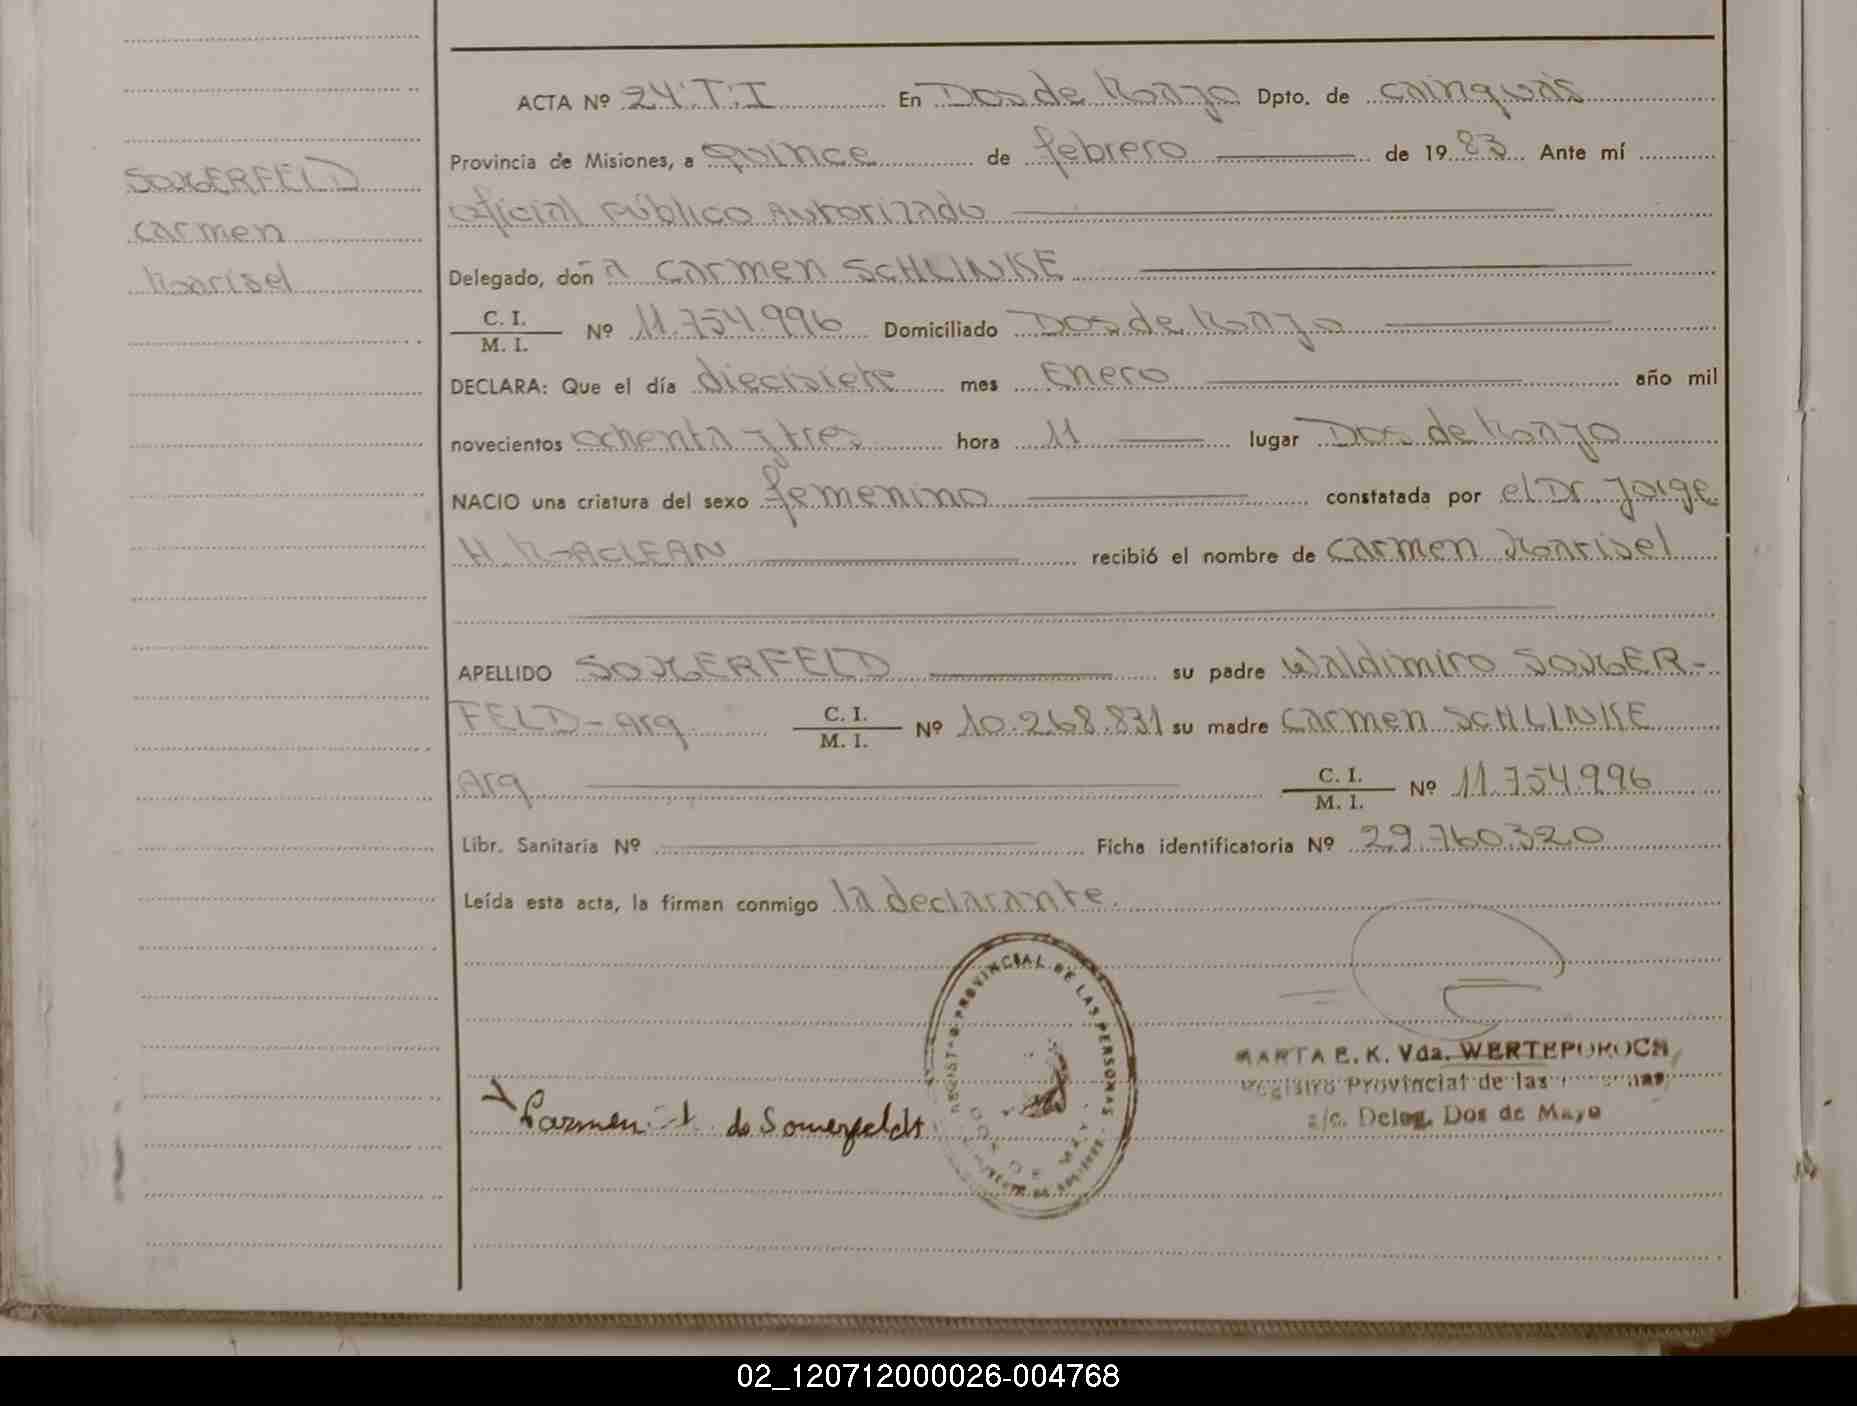 SOMERFELD
carmen
Marisel
ACTA Nº 24 T: I En Dos de Mayo Dpto. de cainguás
Provincia de Misiones, a quince de febrero de 1983 Ante mí
oficial Público Autorizado
Delegado, doña carmen SCHLINKE
C. I.
M. I. Nº 11.754.996 Domiciliado Dos de Mayo
DECLARA: Que el día diecisiete mes Enero año mil
novecientos ochenta y tres hora 11 lugar Dos de Mayo
NACIO una criatura del sexo femenino constatada por el Dr. Jorge
H. MACLEAN recibió el nombre de carmen Marisel
APELLIDO SOMERFELD su padre Waldimiro SOMER-
FELD-Arg C. I. M. I. Nº 10.268.831 su madre carmen SCHLINKE
Arg C. I. M. I. Nº 11.754.996
Libr. Sanitaria Nº Ficha identificatoria Nº 29.760.320
Leída esta acta, la firman conmigo la declarante.
Carmen de Somerfeldt
PROVINCIAL DE LAS PERSONAS
DOS DE MAYO
MARTA E. K. Vda. WERTEPUROCH
Registro Provincial de las
a/c. Deleg. Dos de Mayo
02_120712000026-004768